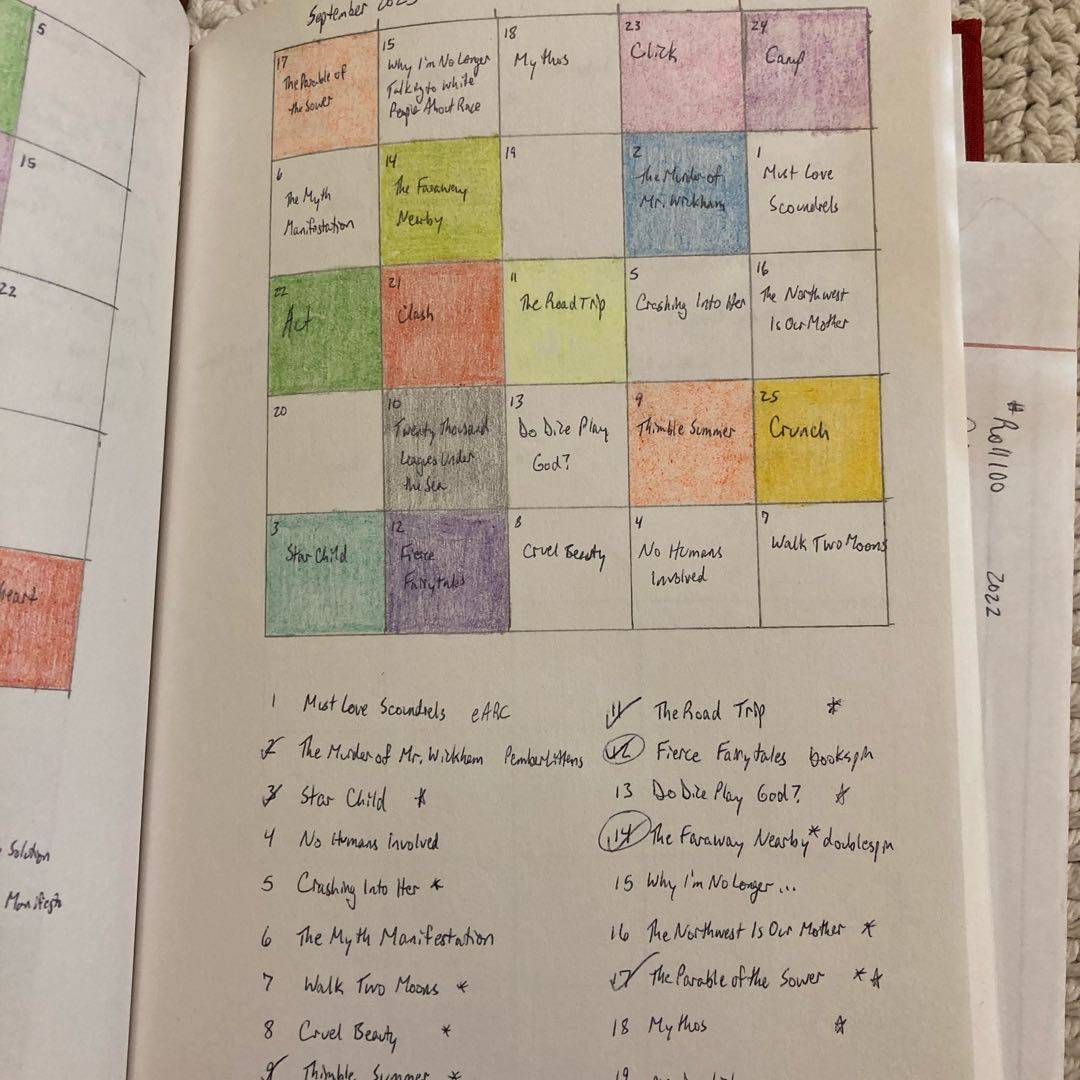 5
15
22
heart
Solution
Manifesto
September
17
The Parable of
the Sower
15
Why I'm No Longer
Talking to White
People About Race
18
Mythos
23
Click
24
Camp
6
The Myth
Manifestation
14
The Faraway
Nearby
19
2
The Murder of
Mr. Wickham
1
Must Love
Scoundrels
22
Act
21
Clash
11
The Road Trip
5
Crashing Into Her
16
The Northwest
Is Our Mother
20
10
Twenty Thousand
Leagues Under
the Sea
13
Do Dice Play
God?
9
Thimble Summer
25
Crunch
3
Star Child
12
Fierce
Fairytales
8
Cruel Beauty
4
No Humans
Involved
7
Walk Two Moons
1 Must Love Scoundrels eARC
2 The Murder of Mr. Wickham Pemberlittens
3 Star Child *
4 No Humans Involved
5 Crashing Into Her *
6 The Myth Manifestation
7 Walk Two Moons *
8 Cruel Beauty *
9 Thimble Summer *
11 The Road Trip *
12 Fierce Fairytales bookspin
13 Do Dice Play God? ☆
14 The Faraway Nearby * doublespin
15 Why I'm No Longer...
16 The Northwest Is Our Mother *
17 The Parable of the Sower * ☆
18 Mythos ☆
19
#Roll100
2022